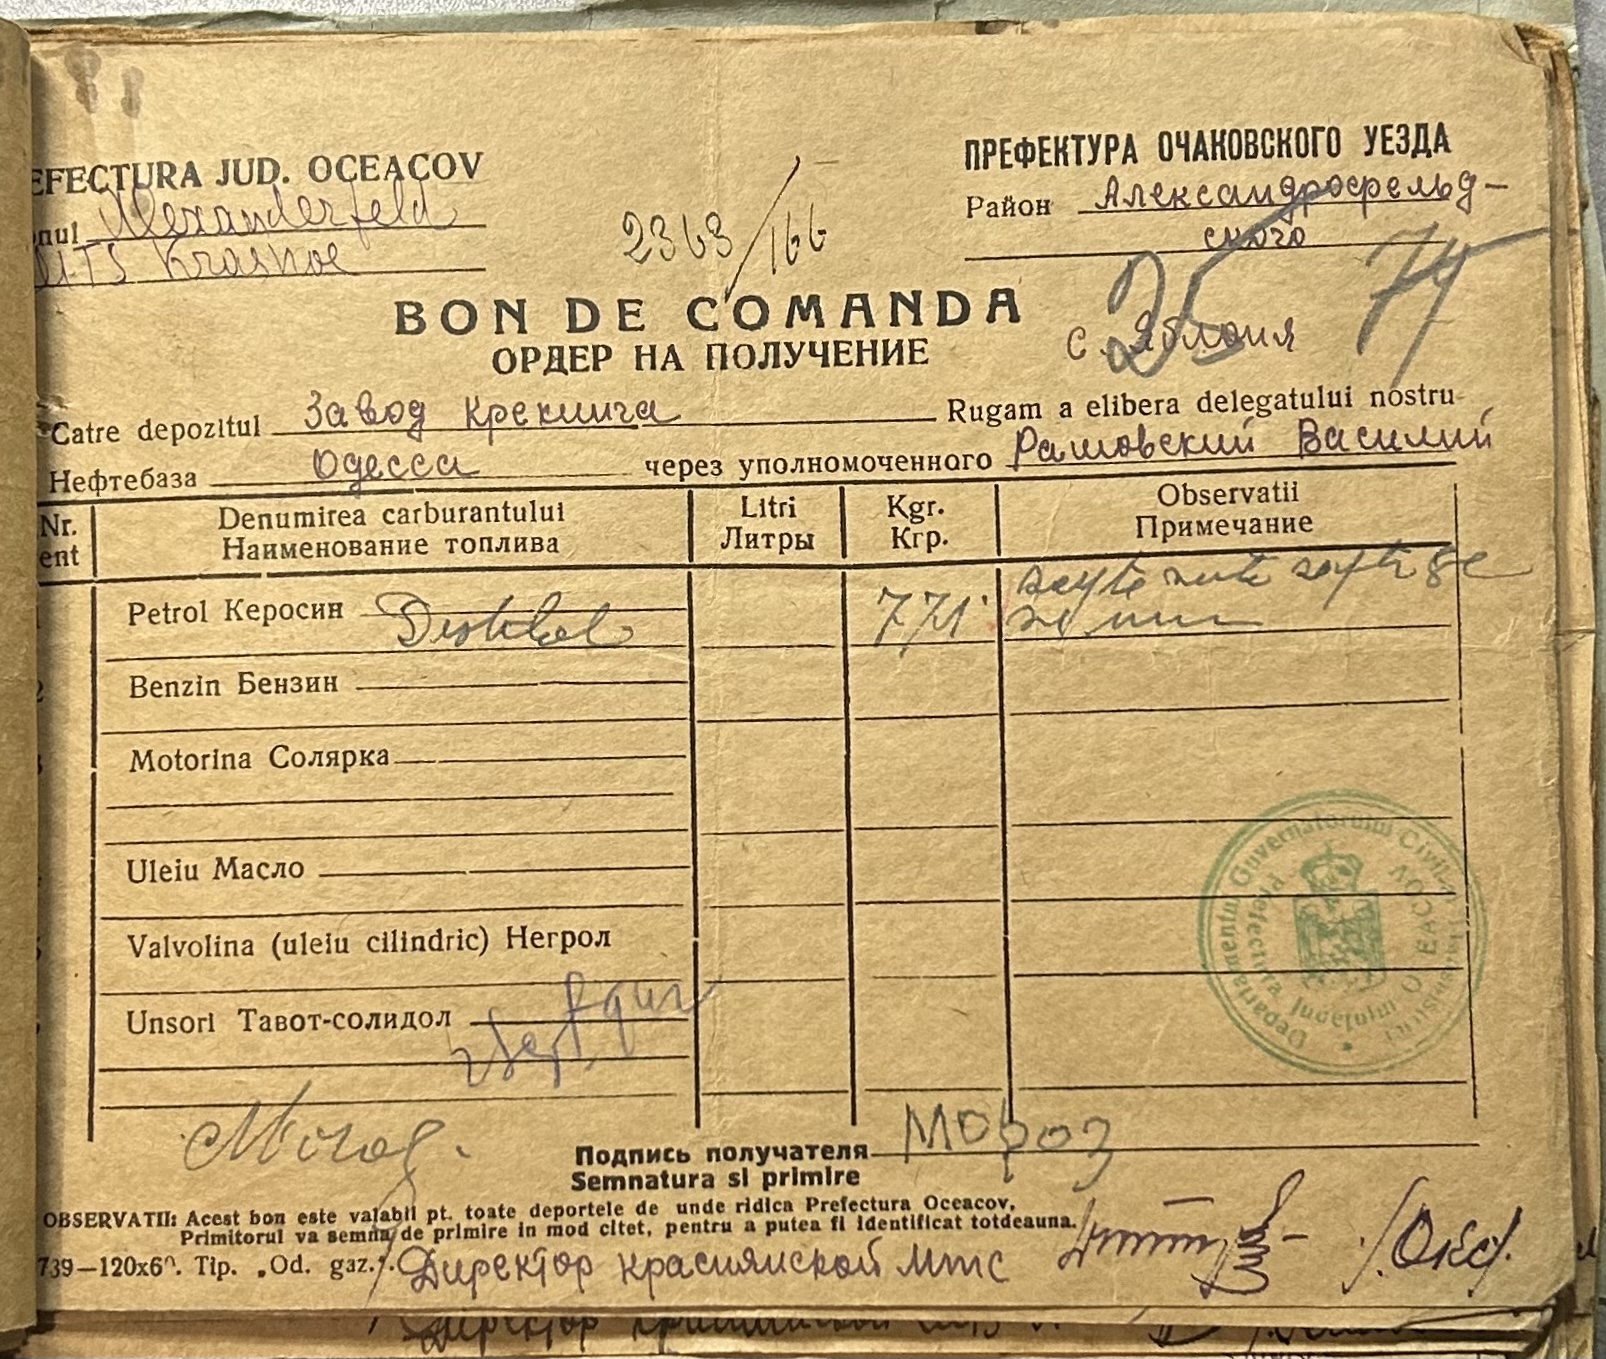 EFECTURA JUD. OCEACOV
nul Alexanderfeld
MTS Krasnoe
2363/166
ПРЕФЕКТУРА ОЧАКОВСКОГО УЕЗДА
Район Александрофельд-
ского
25 74
BON DE COMANDA
ОРДЕР НА ПОЛУЧЕНИЕ
с.
Catre depozitul Завод Крекинга Rugam a elibera delegatului nostru
Нефтебаза Одесса через уполномоченного Рашовский Василий
Nr. Denumirea carburantului Litri Kgr. Observatii
ent Наименование топлива Литры Кгр. Примечание
Petrol Керосин 771
Benzin Бензин
Motorina Солярка
Uleiu Масло
Valvolina (uleiu cilindric) Негрол
Unsori Тавот-солидол
Departamentu Guvernatorului Civil
Prefectura Judetului OCEACOV
Подпись получателя Мороз
Semnatura si primire
OBSERVATII: Acest bon este valabil pt. toate deportele de unde ridica Prefectura Oceacov,
Primitorul va semna de primire in mod citet, pentru a putea fi identificat totdeauna.
739—120x6^. Tip. „Od. gaz."
Директор Краснянской МТС